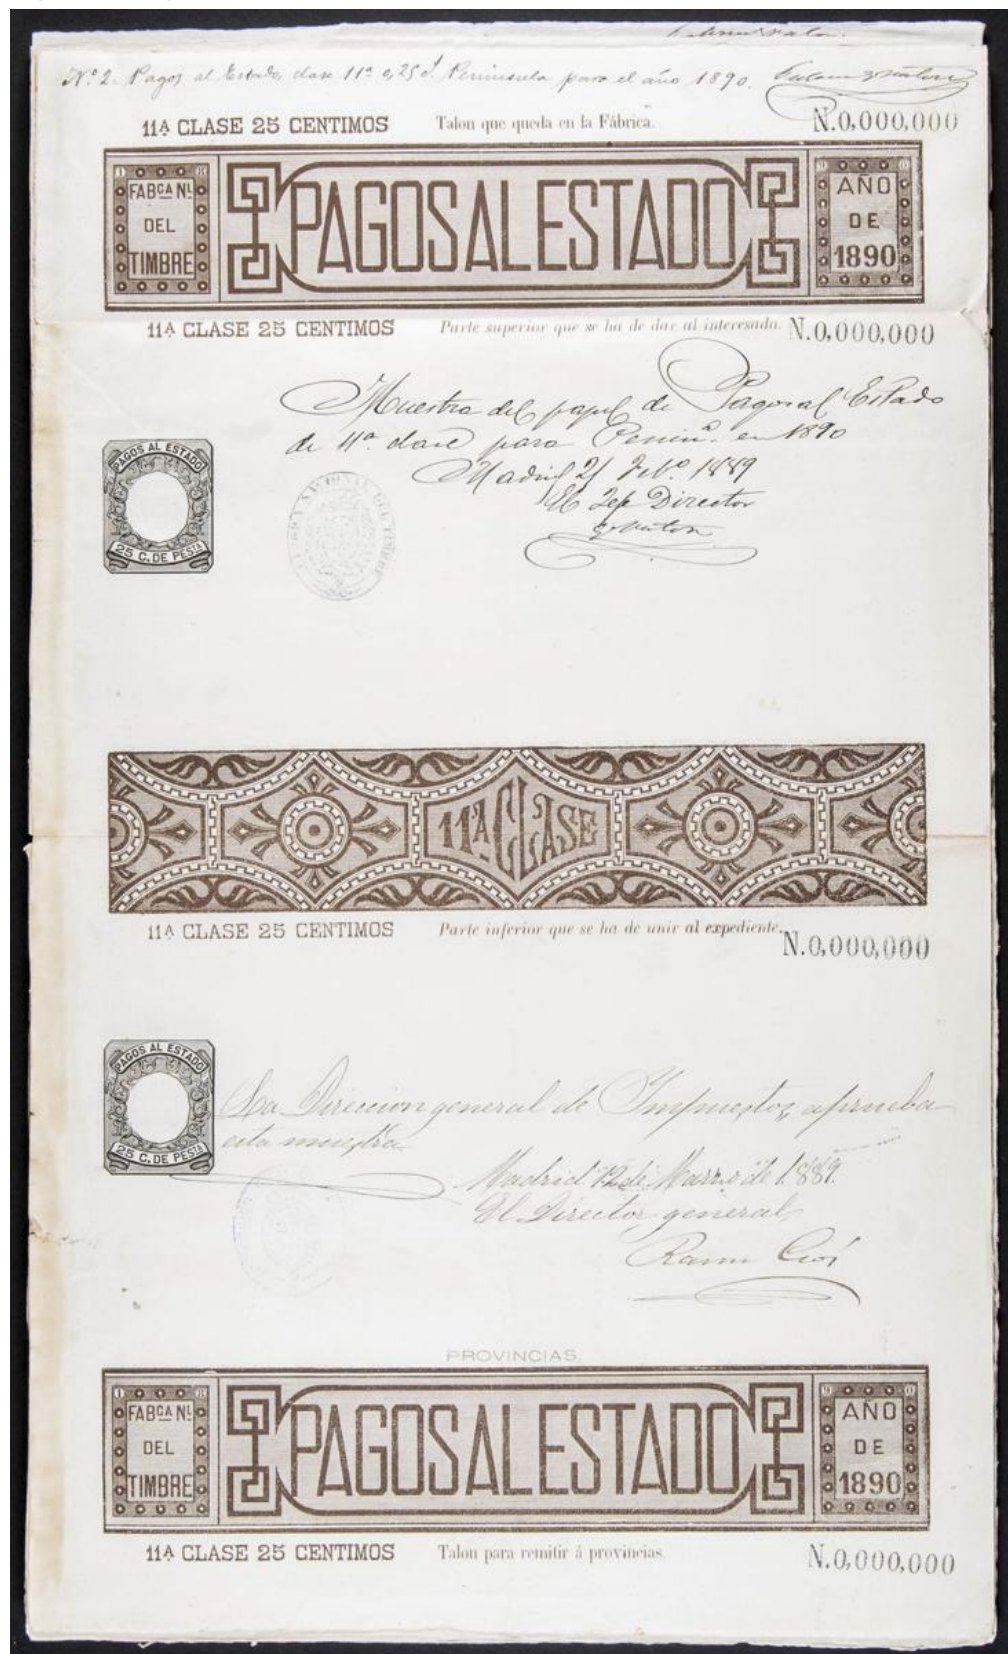 Nº 2. Pagos al Estado, clase 11ª 0,25 Cs. Peninsula para el año 1890.
11ª CLASE 25 CENTIMOS Talon que queda en la Fábrica. N.0,000,000
FABCA NL DEL TIMBRE PAGOS AL ESTADO AÑO DE 1890
11ª CLASE 25 CENTIMOS Parte superior que se ha de dar al interesado. N.0,000,000
Muestra del papel de Pagos al Estado
de 11ª clase para Peninª. en 1890
Madrid 21 Febº 1889
El Jefe Director
PAGOS AL ESTADO
25 C. DE PESTA
11ª CLASE
11ª CLASE 25 CENTIMOS Parte inferior que se ha de unir al expediente. N.0,000,000
PAGOS AL ESTADO
25 C. DE PESTA
La Direccion general de Impuestos aprueba
esta muestra
Madrid 12 de Marzo de 1889.
El Director general
PROVINCIAS.
FABCA NL DEL TIMBRE PAGOS AL ESTADO AÑO DE 1890
11ª CLASE 25 CENTIMOS Talon para remitir á provincias. N.0,000,000